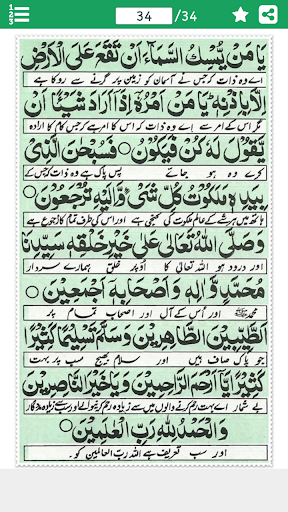 34 /34
يَا مَنْ يُّمْسِكُ السَّمَآءَ اَنْ تَقَعَ عَلَى الْاَرْضِ
اے وہ ذات کہ جس نے آسمان کو زمین پر گرنے سے روکا ہے
اِلَّا بِاِذْنِهٖ يَا مَنْ اَمْرُهٗ اِذَا اَرَادَ شَيْئًا اَنْ
مگر اس کے امر سے اے وہ ذات کہ اس کا امر ہے کہ جس کام کا ارادہ
يَّقُوْلَ لَهٗ كُنْ فَيَكُوْنُ ○ فَسُبْحٰنَ الَّذِيْ
کرے وہ ہو جائے پس پاک ہے وہ ذات کہ جس کے
بِيَدِهٖ مَلَكُوْتُ كُلِّ شَيْءٍ وَّاِلَيْهِ تُرْجَعُوْنَ ○
ہاتھ میں ہر شے کے عالم ملکوت کی کنجی ہے اور اس کی طرف تمام کا رجوع ہے
وَصَلَّى اللّٰهُ تَعَالٰى عَلٰى خَيْرِ خَلْقِهٖ سَيِّدِنَا
اور درود ہو اللہ تعالی کا اوپر خلق ہمارے سردار
مُحَمَّدٍ وَّاٰلِهٖ وَاَصْحَابِهٖ اَجْمَعِيْنَ ○
محمد ﷺ اور اُس کے آل اور اصحاب تمام پر
الطَّيِّبِيْنَ الطَّاهِرِيْنَ وَسَلَّمَ تَسْلِيْمًا كَثِيْرًا
جو پاک صاف ہیں اور سلام بھیج سب پر بہت
كَثِيْرًا يَا اَرْحَمَ الرَّاحِمِيْنَ وَيَا خَيْرَ النَّاصِرِيْنَ
بے شمار اے بہت رحم کرنے والوں میں سے زیادہ رحم کرنے والے اور سب سے زیادہ
○ وَالْحَمْدُ لِلّٰهِ رَبِّ الْعٰلَمِيْنَ ○
اور سب تعریف ہے اللہ رب العالمین کو۔